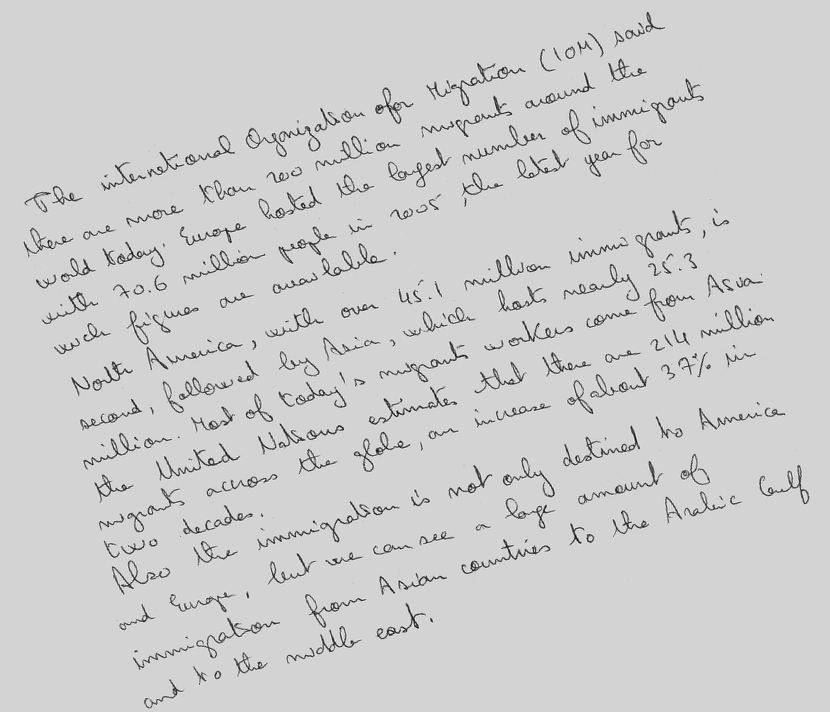 The international Organization ofor Migration (IOM) said
there are more than 200 million migrants around the
world today. Europe hosted the largest number of immigrants
with 70.6 million people in 2005, the latest year for
wich figures are available.
North America, with over 45.1 million immigrants, is
second, followed by Asia, which hosts nearly 25.3
million. Most of today's migrants workers come from Asia.
the United Nations estimates that there are 214 million
migrants across the globe, an increase of about 37% in
two decades.
Also the immigration is not only destined to America
and Europe, but we can see a large amount of
immigration from Asian countries to the Arabic Gulf
and to the middle east.